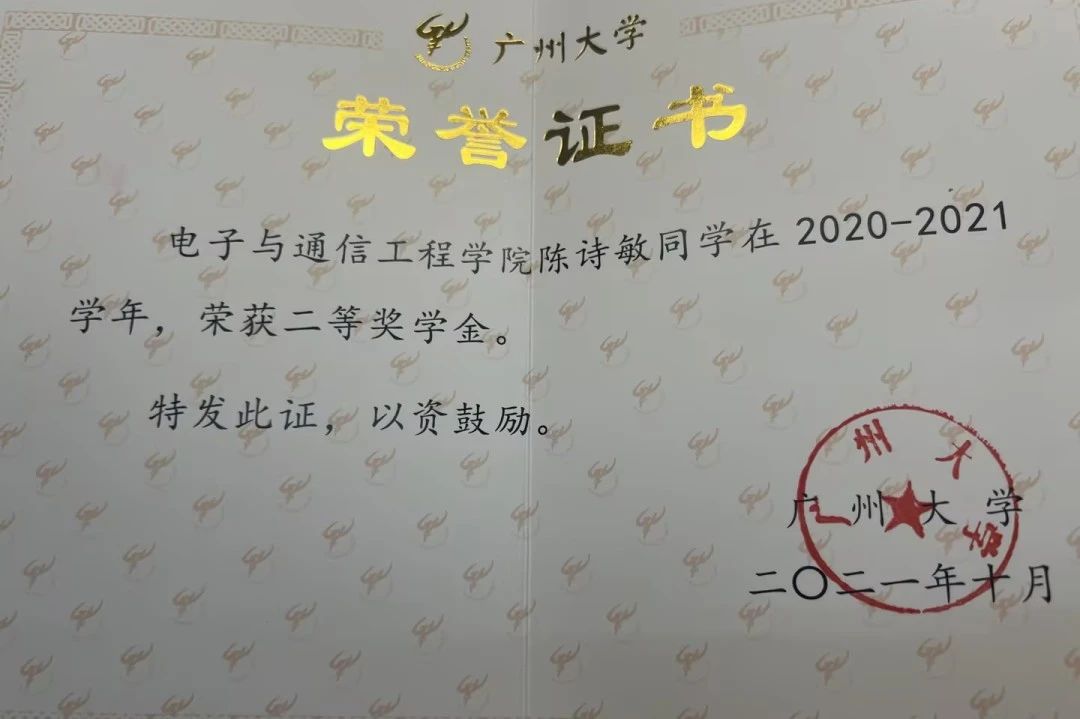 广州大学
荣誉证书
电子与通信工程学院陈诗敏同学在 2020-2021
学年，荣获二等奖学金。
特发此证，以资鼓励。
广州大学
广州大学
二〇二一年十月